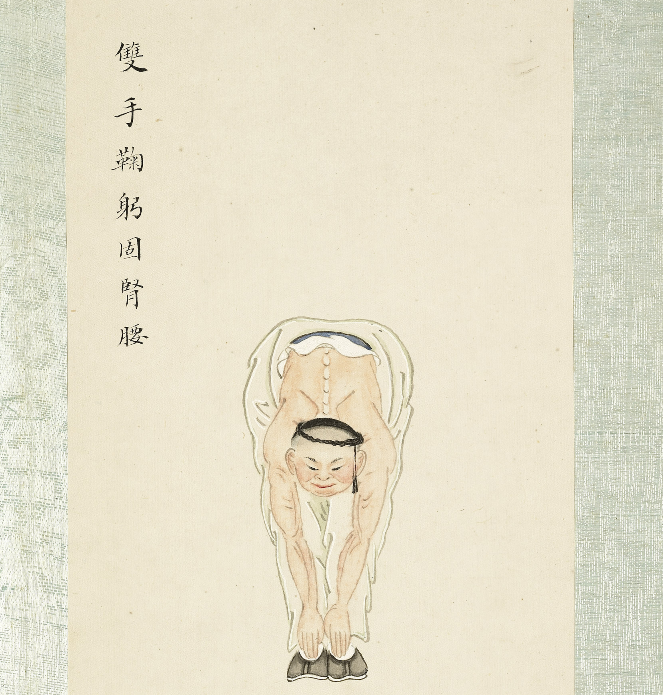 雙手鞠躬固腎腰